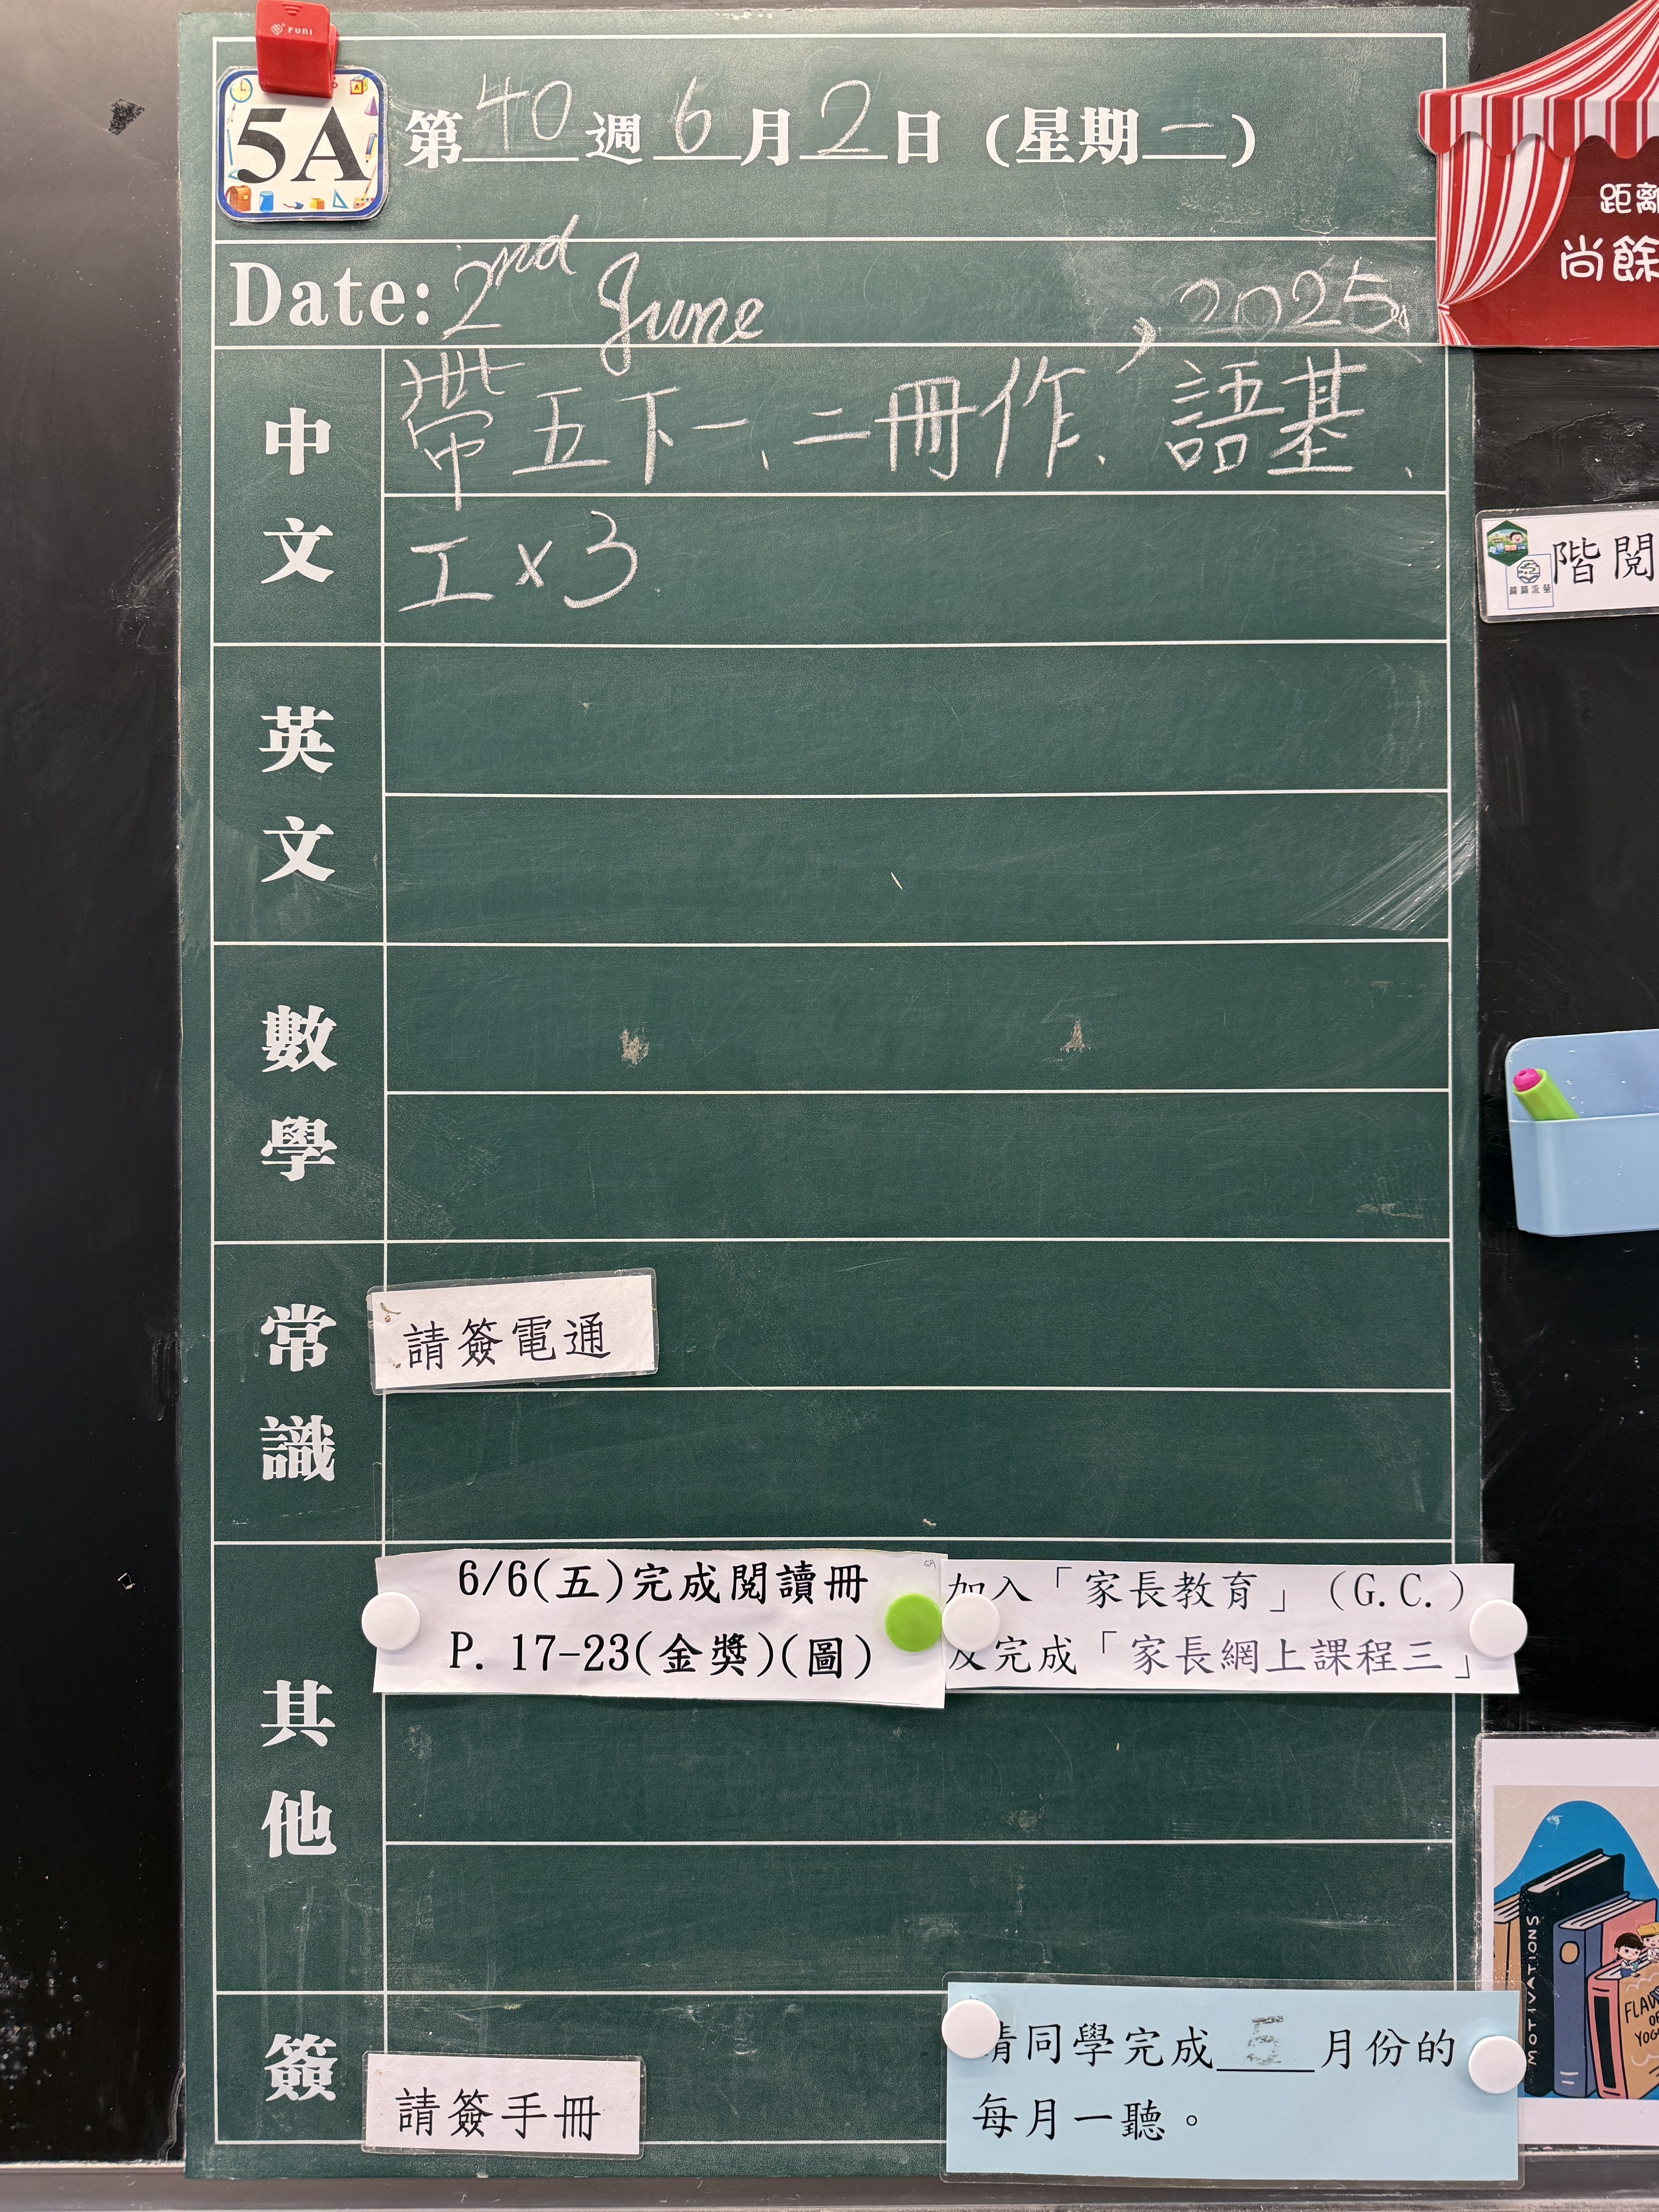 FUNI
5A
第40週6月2日(星期一)
Date: 2nd June, 2025
中文
帶五下一、二冊作、語基、
工x3
英文
數學
常識
請簽電通
其他
6/6(五)完成閱讀冊
P. 17-23(金獎)(圖)
加入「家長教育」(G.C.)
及完成「家長網上課程三」
簽
請簽手冊
請同學完成5月份的
每月一聽。
距離
尚餘
階閱
MOTIVATIONS